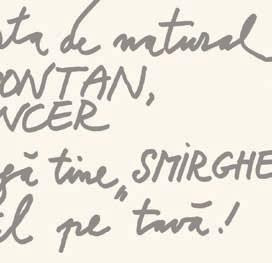 rta de natural
ONTAN,
NCER
gă tine, SMIRGHE
el pe "tavă"!